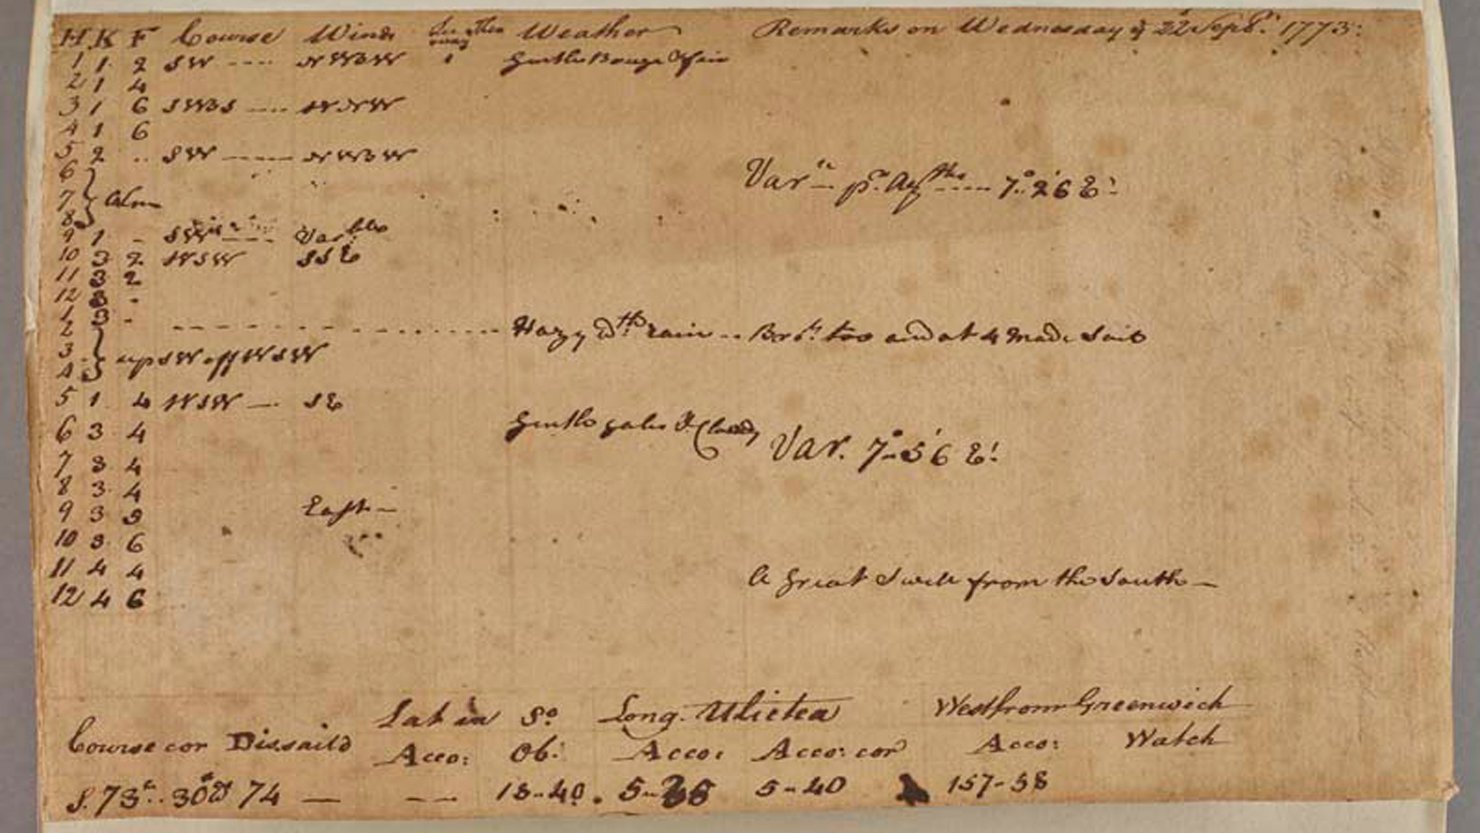 H K F Course Winds Weather Remarks on Wednesday ye 22d Sepbr. 1773:
1 1 2 SW ---- NWBW 1 Gentle Breeze & fair
2 1 4
3 1 6 SWBS ---- WNW
4 1 6
5 2 .. SW ---- NWBW
Varn — pr. Azths ---- 7°..26' E:
6
7 } Calm
8
9 1 - SW ---- Varble
10 3 2 WSW SSE
11 3 2
12 3 -
1 3 -
2 Hazy Wth. rain -- Brot. too and at 4 Made Sail
3 } up SW off WSW
4
5 1 4 WSW — SE
6 3 4 Gentle gales & Cloudy Var. 7°-56' E:
7 3 4
8 3 4
9 3 3 East —
10 3 6
11 4 4 A Great Swell from the South —
12 4 6
Lat in So. Long. Ulietea West from Greenwich
Course cor Dis saild Acco: Ob: Acco: Acco: cor Acco: Watch
S. 73°..30' W 74 — — -- 18-40. 5- 5-40 157-58